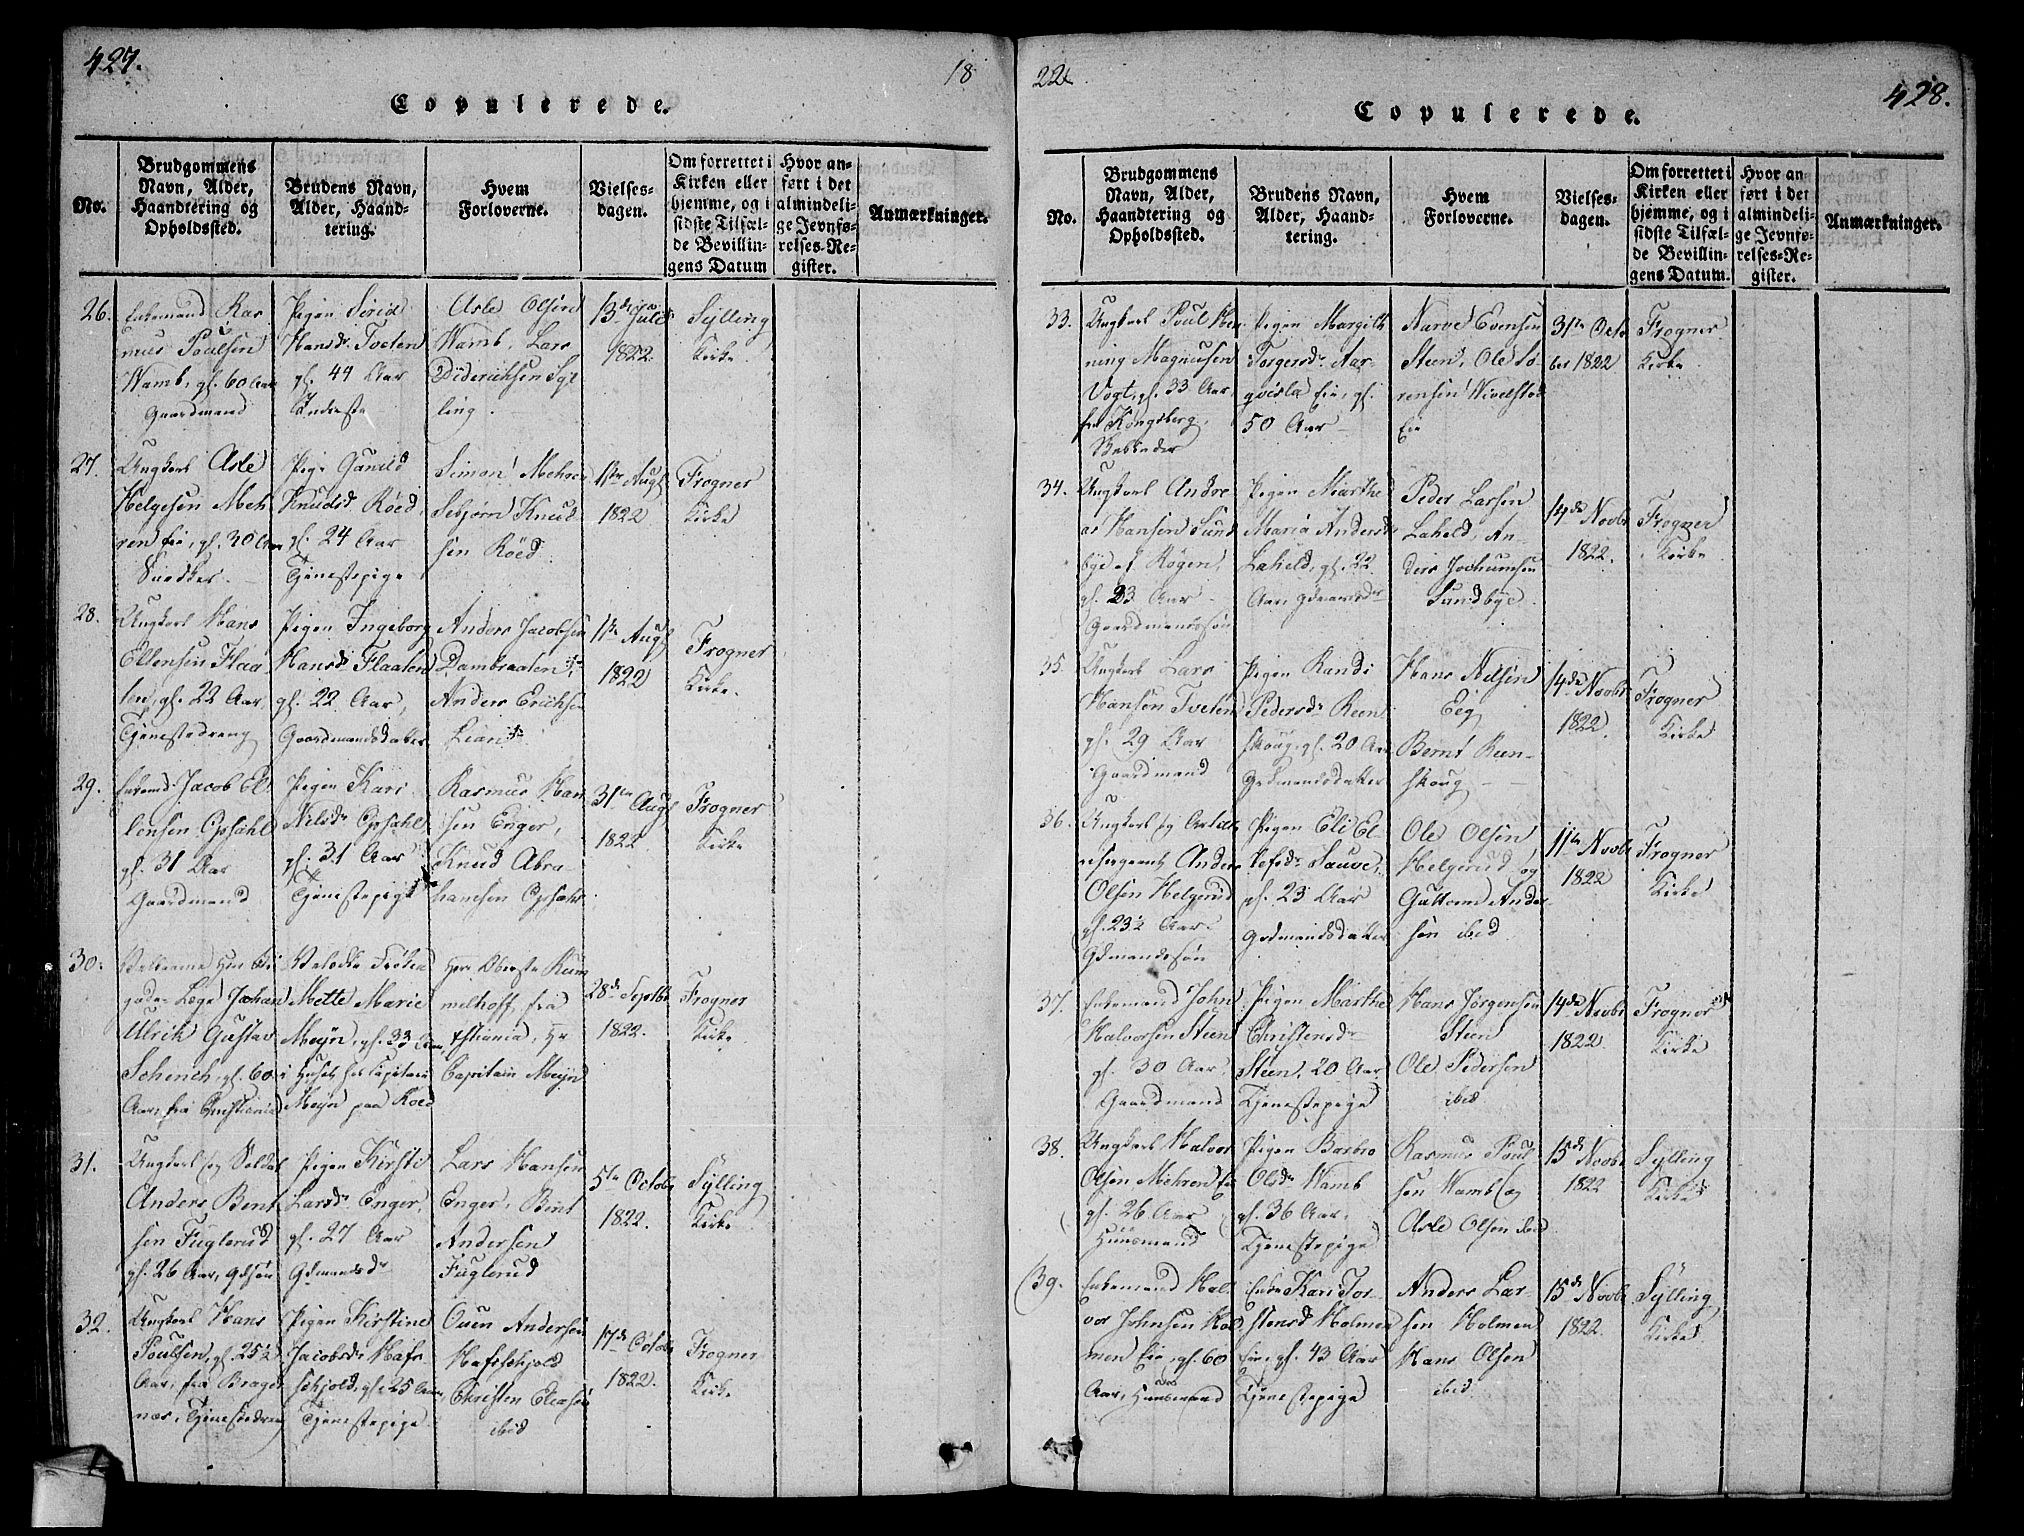 427.
18
Copulerede.
No.
Brudgommens
Navn, Alder,
Haandtering og
Opholdssted.
Brudens Navn,
Alder, Haand-
tering.
Hvem
Forloverne.
Vielses-
dagen.
Om forrettet i
Kirken eller
hjemme, og i
sidste Tilfæl-
de Bevillin-
gens Datum
Hvor an-
ført i det
almindeli-
ge Jevnfø-
relses-Re-
gister.
Anmærkninger.
26.
Enkemand Ras
mus Poulsen
Wamb, gl. 60 Aar
Gaardmand
Pigen Siri
Hansdr Tveten
gl. 44 Aar
Asle Olsen
Wamb, Lars
Dideriksen Syl
ling.
13de Julii
1822.
Sylling
Kirke
27.
Ungkarl Asle
Helgesen Meh
ren Eie, gl. 30 Aar
Pige Gunild
Knudsd Röed,
gl. 24 Aar
Tjenestepige
Simon Mehren
Sebjørn Knud
sen Röed
1ste Augt
1822
Frogner
Kirke
28.
Ungkarl Hans
Ellensen Flaa
ten, gl. 22 Aar
Tjenestedreng
Pigen Ingeborg
Hansdr Flaaten
gl. 22 Aar,
Gaardmandsdatter
Anders Jacobsen
Dambraaten
Anders Erichsen
Lian
1ste Augt
1822
Frogner
Kirke.
29.
Enkemd Jacob El
lensen Opsahl
gl. 31 Aar
Gaardmand
Pigen Kari
Nilsdr Opsahl
gl. 31 Aar
Tjenestepige
Rasmus Han
sen Enger,
Knud Abra
hamsen Opsahl
31te Augt
1822
Frogner
Kirke
30.
Herr Bri
gade-Læge Johan
Ulrik Gustav
Schench, gl. 60
Aar, fra Christiania
Frøken
Mette Marie
Meijn, gl. 33 Aar,
i Huset hos Capitain
Meijn paa Röed
Herr Oberste Rum
melhoff fra
Xstiania, Hr
Capitain Meijn
28de Septbr
1822.
Frogner
Kirke
31.
Ungkarl og Soldat
Anders Bent
sen Fuglerud
gl. 26 Aar, Gdsøn
Pigen Kirsti
Larsdr Enger,
gl. 27 Aar
Gdmandsdr
Lars Hansen
Enger, Bent
Andersen
Fuglerud
5te Octobr
1822.
Sylling
Kirke
32.
Ungkarl Hans
Poulsen, gl. 25½
Aar, fra Brager
næs, Tjenestedreng
Pigen Kirstine
Jacobsdr Hafs
schjold, gl. 25 Aar,
Tjenestepige
Ouen Andersen
Hafsschjold
Christen Eliasen
ibid
17de Octobr
1822.
Frogner
Kirke
22.
428.
Copulerede.
No.
Brudgommens
Navn, Alder,
Haandtering og
Opholdssted.
Brudens Navn,
Alder, Haand-
tering.
Hvem
Forloverne.
Vielses-
dagen.
Om forrettet i
Kirken eller
hjemme, og i
sidste Tilfæl-
de Bevillin-
gens Datum.
Hvor an
ført i det
almindeli-
ge Jevnfø-
relses-Re-
gister.
Anmærkninger.
33.
Ungkarl Poul Hen
ning Magnusen
Vogt, gl. 33 Aar,
fra Kongsberg,
Pigen Margith
Torgersdr Aar-
qvisla Eie, gl.
50 Aar
Narve Evensen
Steen, Ole Sø-
rensen Wivelstad
Eie
31te Octo
ber 1822
Frogner
Kirke
34.
Ungkarl Andre
as Hansen Sund
bye af Røgen,
gl. 23 Aar
Gaardmandssøn
Pigen Marthe
Maria Andersdr
Laheld, gl. 22
Aar, Gdmandsdr
Peder Larsen
Laheld, An-
ders Jochumsen
Sundbye.
14de Novbr
1822.
Frogner
Kirke
35.
Ungkarl Lars
Hansen Tveten
gl. 29 Aar
Gaardmand
Pigen Randi
Pedersdr Reen
skoug, gl. 20 Aar
Grdmandsdatter
Hans Nilsen
Eeg
Bernt Reen-
skoug
14de Novbr
1822.
Frogner
Kirke
36.
Ungkarl og
Anders
Olsen Helgerud
gl. 23½ Aar
Gdmandssøn
Pigen Eli El-
lefsdr Sauve,
gl. 23 Aar
Grdmandsdatter
Ole Olsen
Helgerud, og
Guttorm Ander
sen ibid
11te Novbr
1822
Frogner
Kirke
37.
Enkemand John
Halvorsen Steen
gl. 30 Aar,
Gaardmand
Pigen Marthe
Christensdr
Steen, 20 Aar
Tjenestepige
Hans Jørgensen
Steen
Ole Pedersen
ibid
14de Novbr
1822
Frogner
Kirke
38.
Ungkarl Halvor
Olsen Mehren Eie
gl. 26 Aar
Huusmand
Pigen Barbro
Olsdr Wamb
gl. 36 Aar,
Tjenestepige
Rasmus Poul
sen Wamb og
Asle Olsen ibid
15de Novbr
1822
Sylling
Kirke
39.
Enkemand Hal-
vor Johnsen Hol
men Eie, gl. 60
Aar, Huusmand
Enke Kari Tor-
stensd Holmen
Eie, gl. 43 Aar
Tjenestepige
Anders Lar-
sen Holmen
Hans Olsen
ibid.
15de Novbr
1822.
Sylling
Kirke